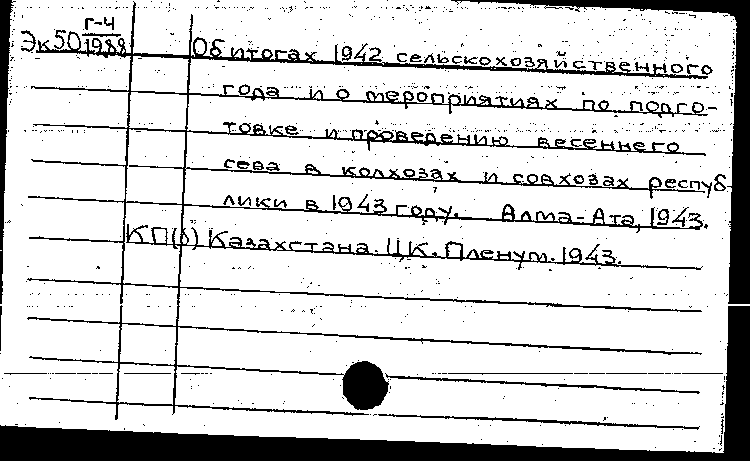 Г-4
Эк50 1988
Об итогах 1942 сельскохозяйственного
года и о мероприятиях по подго-
товке и проведению весеннего
сева в колхозах и совхозах респуб-
лики в 1943 году. Алма-Ата, 1943.
КП(б) Казахстана. ЦК. Пленум. 1943.